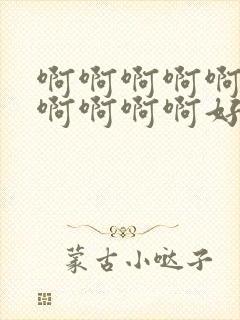 啊啊啊啊啊
啊啊啊啊好
蒙古小哒子